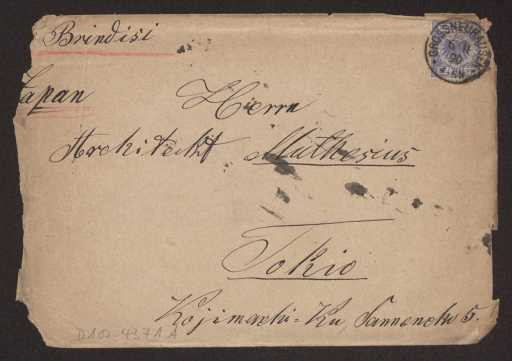 Brindisi
Japan
Herrn
Architekt Muthesius
Tokio
Kojimachi-Ku, Sannencho 5.
GROSSNEUHAUSEN
6 11
90